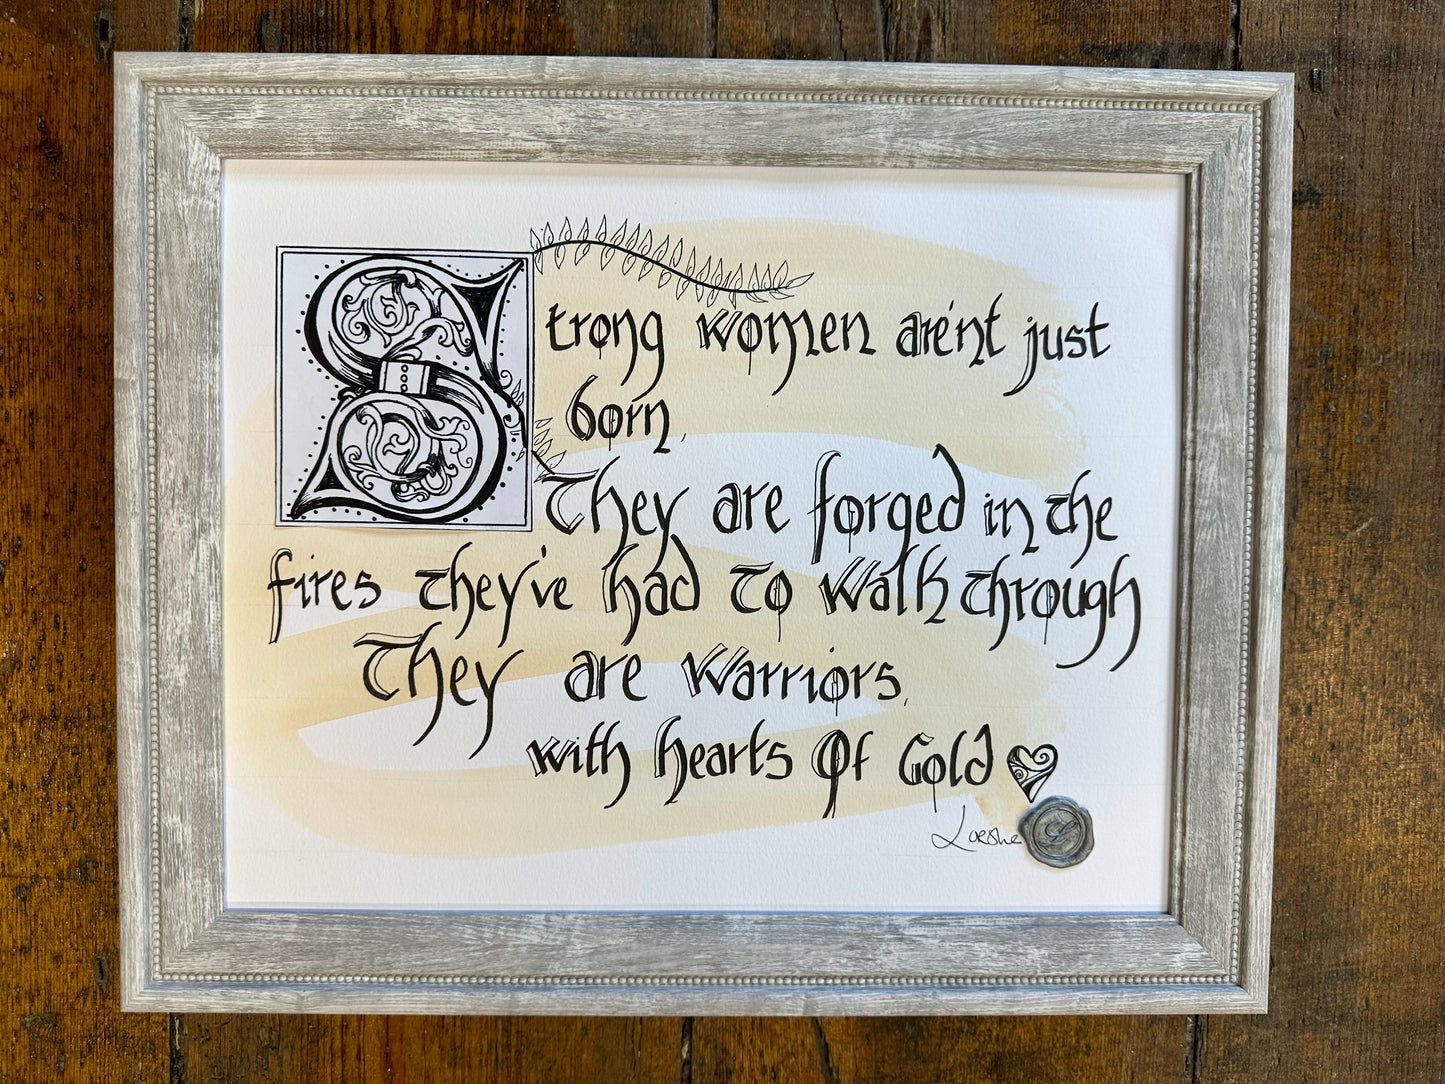 Strong women are'nt just
born,
They are forged in the
fires they've had to walk through
They are warriors,
with hearts Of Gold